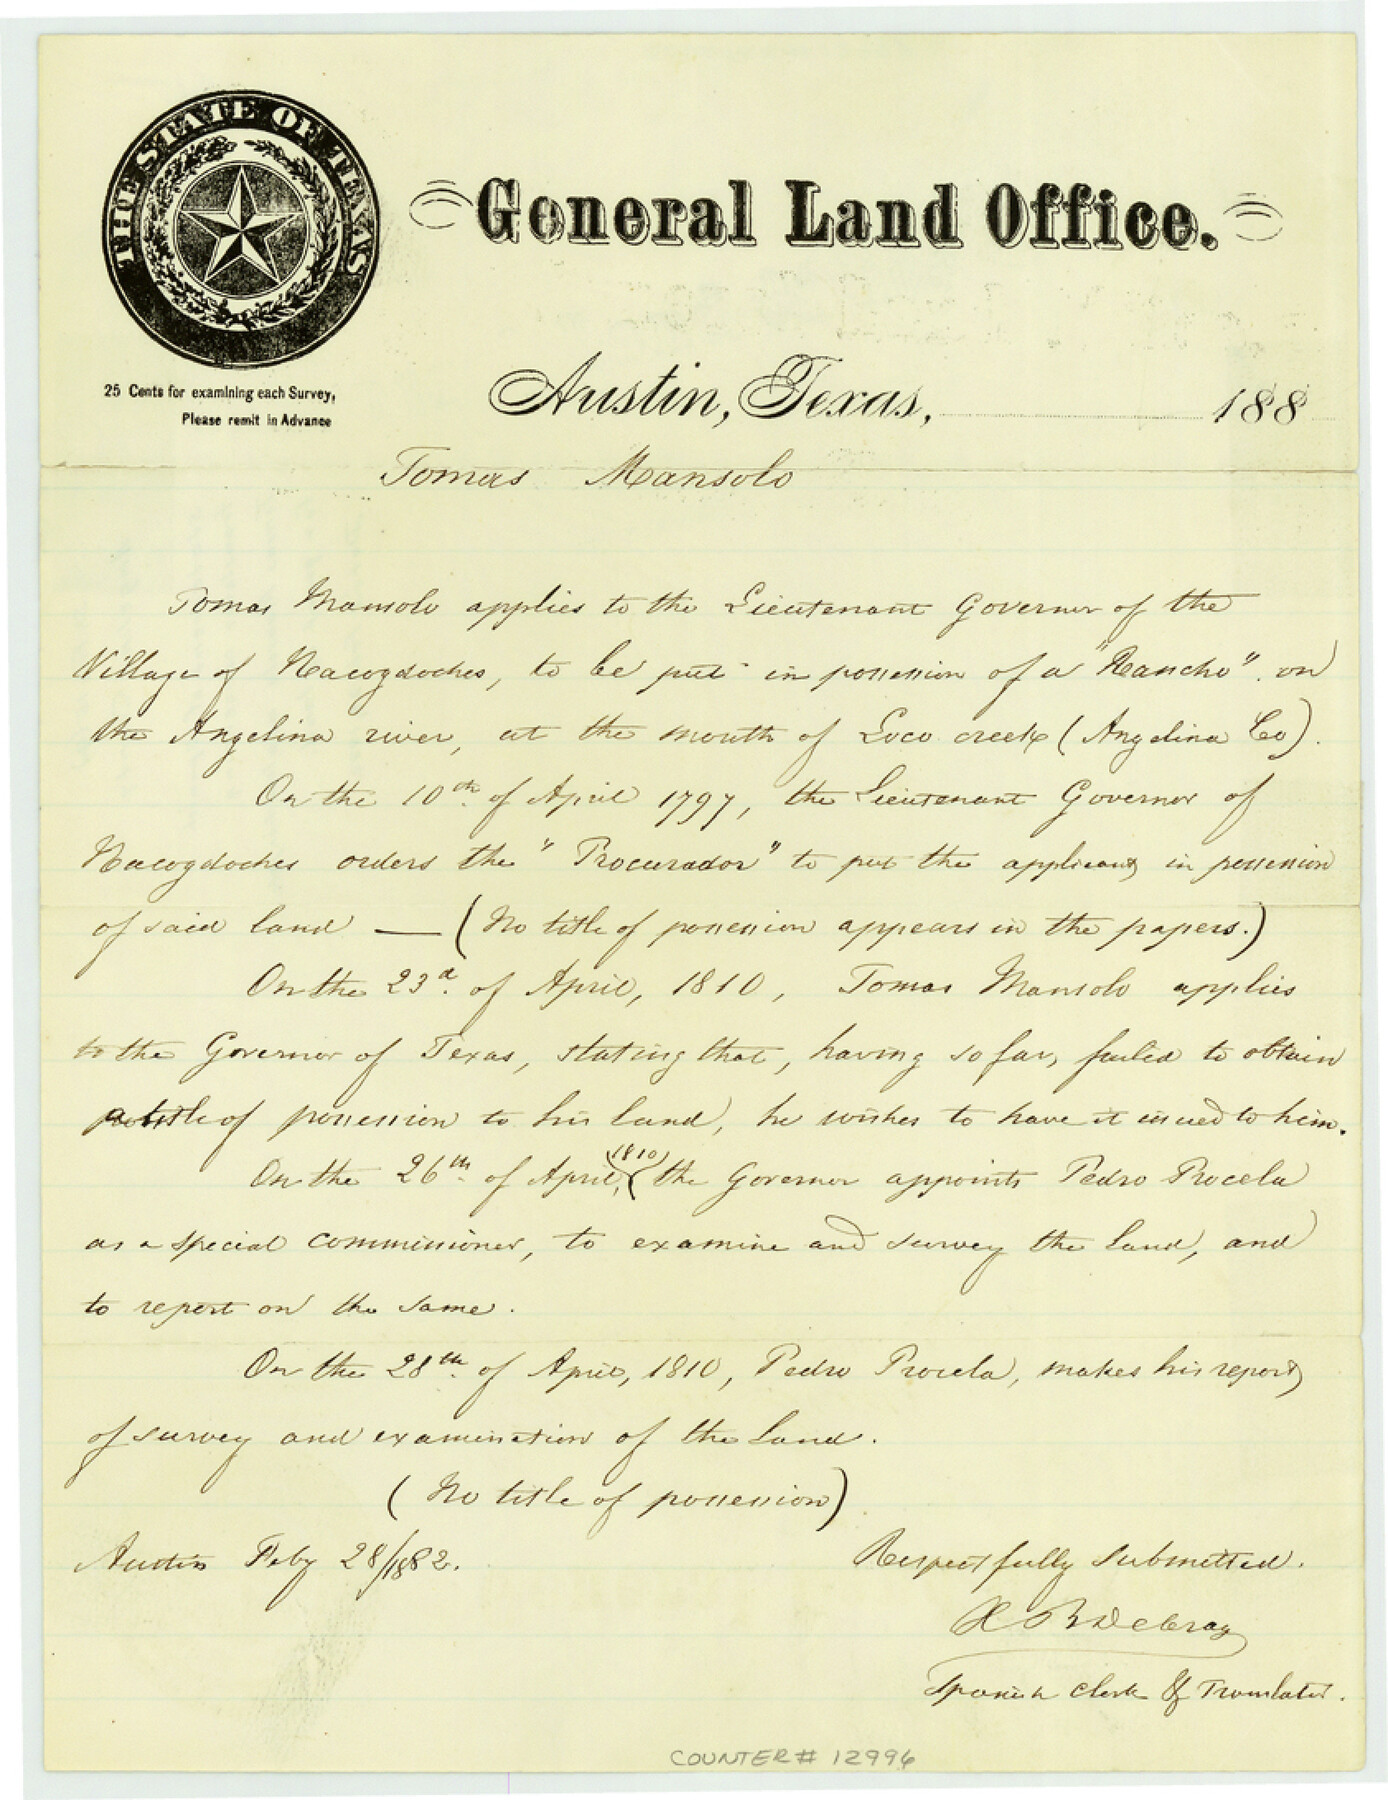 THE STATE OF TEXAS
General Land Office.
25 Cents for examining each Survey,
Please remit in Advance
Austin, Texas, 188
Tomas Mansolo
Tomas Mansolo applies to the Lieutenant Governor of the
Village of Nacogdoches, to be put in possession of a "Rancho" on
the Angelina river, at the mouth of Loco creek (Angelina Co).
On the 10th. of April 1797, the Lieutenant Governor of
Nacogdoches orders the "Procurador" to put the applicant, in possession
of said land — (No title of possession appears in the papers.)
On the 23d. of April, 1810, Tomas Mansolo applies
to the Governor of Texas, stating that, having so far, failed to obtain
a title of possession to his land, he wishes to have it issued to him.
On the 26th. of April, 1810 the Governor appoints Pedro Procela
as a special commissioner, to examine and survey the land, and
to report on the same.
On the 28th. of April, 1810, Pedro Procela, makes his report
of survey and examination of the land.
(No title of possession)
Austin Feby 28/1882.
Respectfully submitted.
X B DeBray
Spanish Clerk & Translator.
COUNTER# 12996